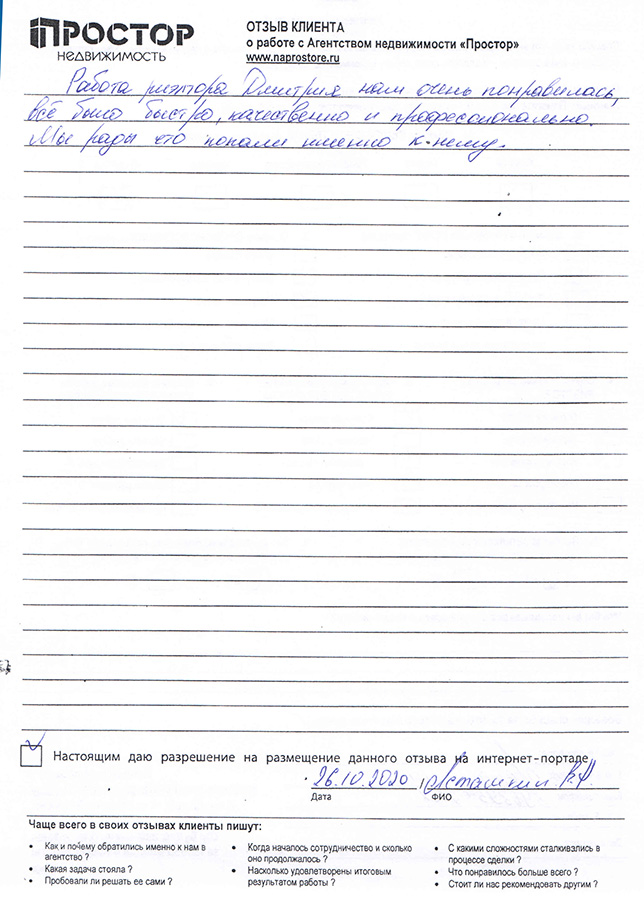 ПРОСТОР
НЕДВИЖИМОСТЬ
ОТЗЫВ КЛИЕНТА
о работе с Агентством недвижимости «Простор»
www.naprostore.ru
Работа риэлтора Дмитрия нам очень понравилась,
всё было быстро, качественно и профессионально.
Мы рады что попали именно к нему.
Настоящим даю разрешение на размещение данного отзыва на интернет-портале
26.10.2020
Дата ФИО
Чаще всего в своих отзывах клиенты пишут:
• Как и почему обратились именно к нам в
агентство ?
• Какая задача стояла ?
• Пробовали ли решать ее сами ?
• Когда началось сотрудничество и сколько
оно продолжалось ?
• Насколько удовлетворены итоговым
результатом работы ?
• С какими сложностями сталкивзлись в
процессе сделки ?
• Что понравилось больше всего ?
• Стоит ли нас рекомендовать другим ?